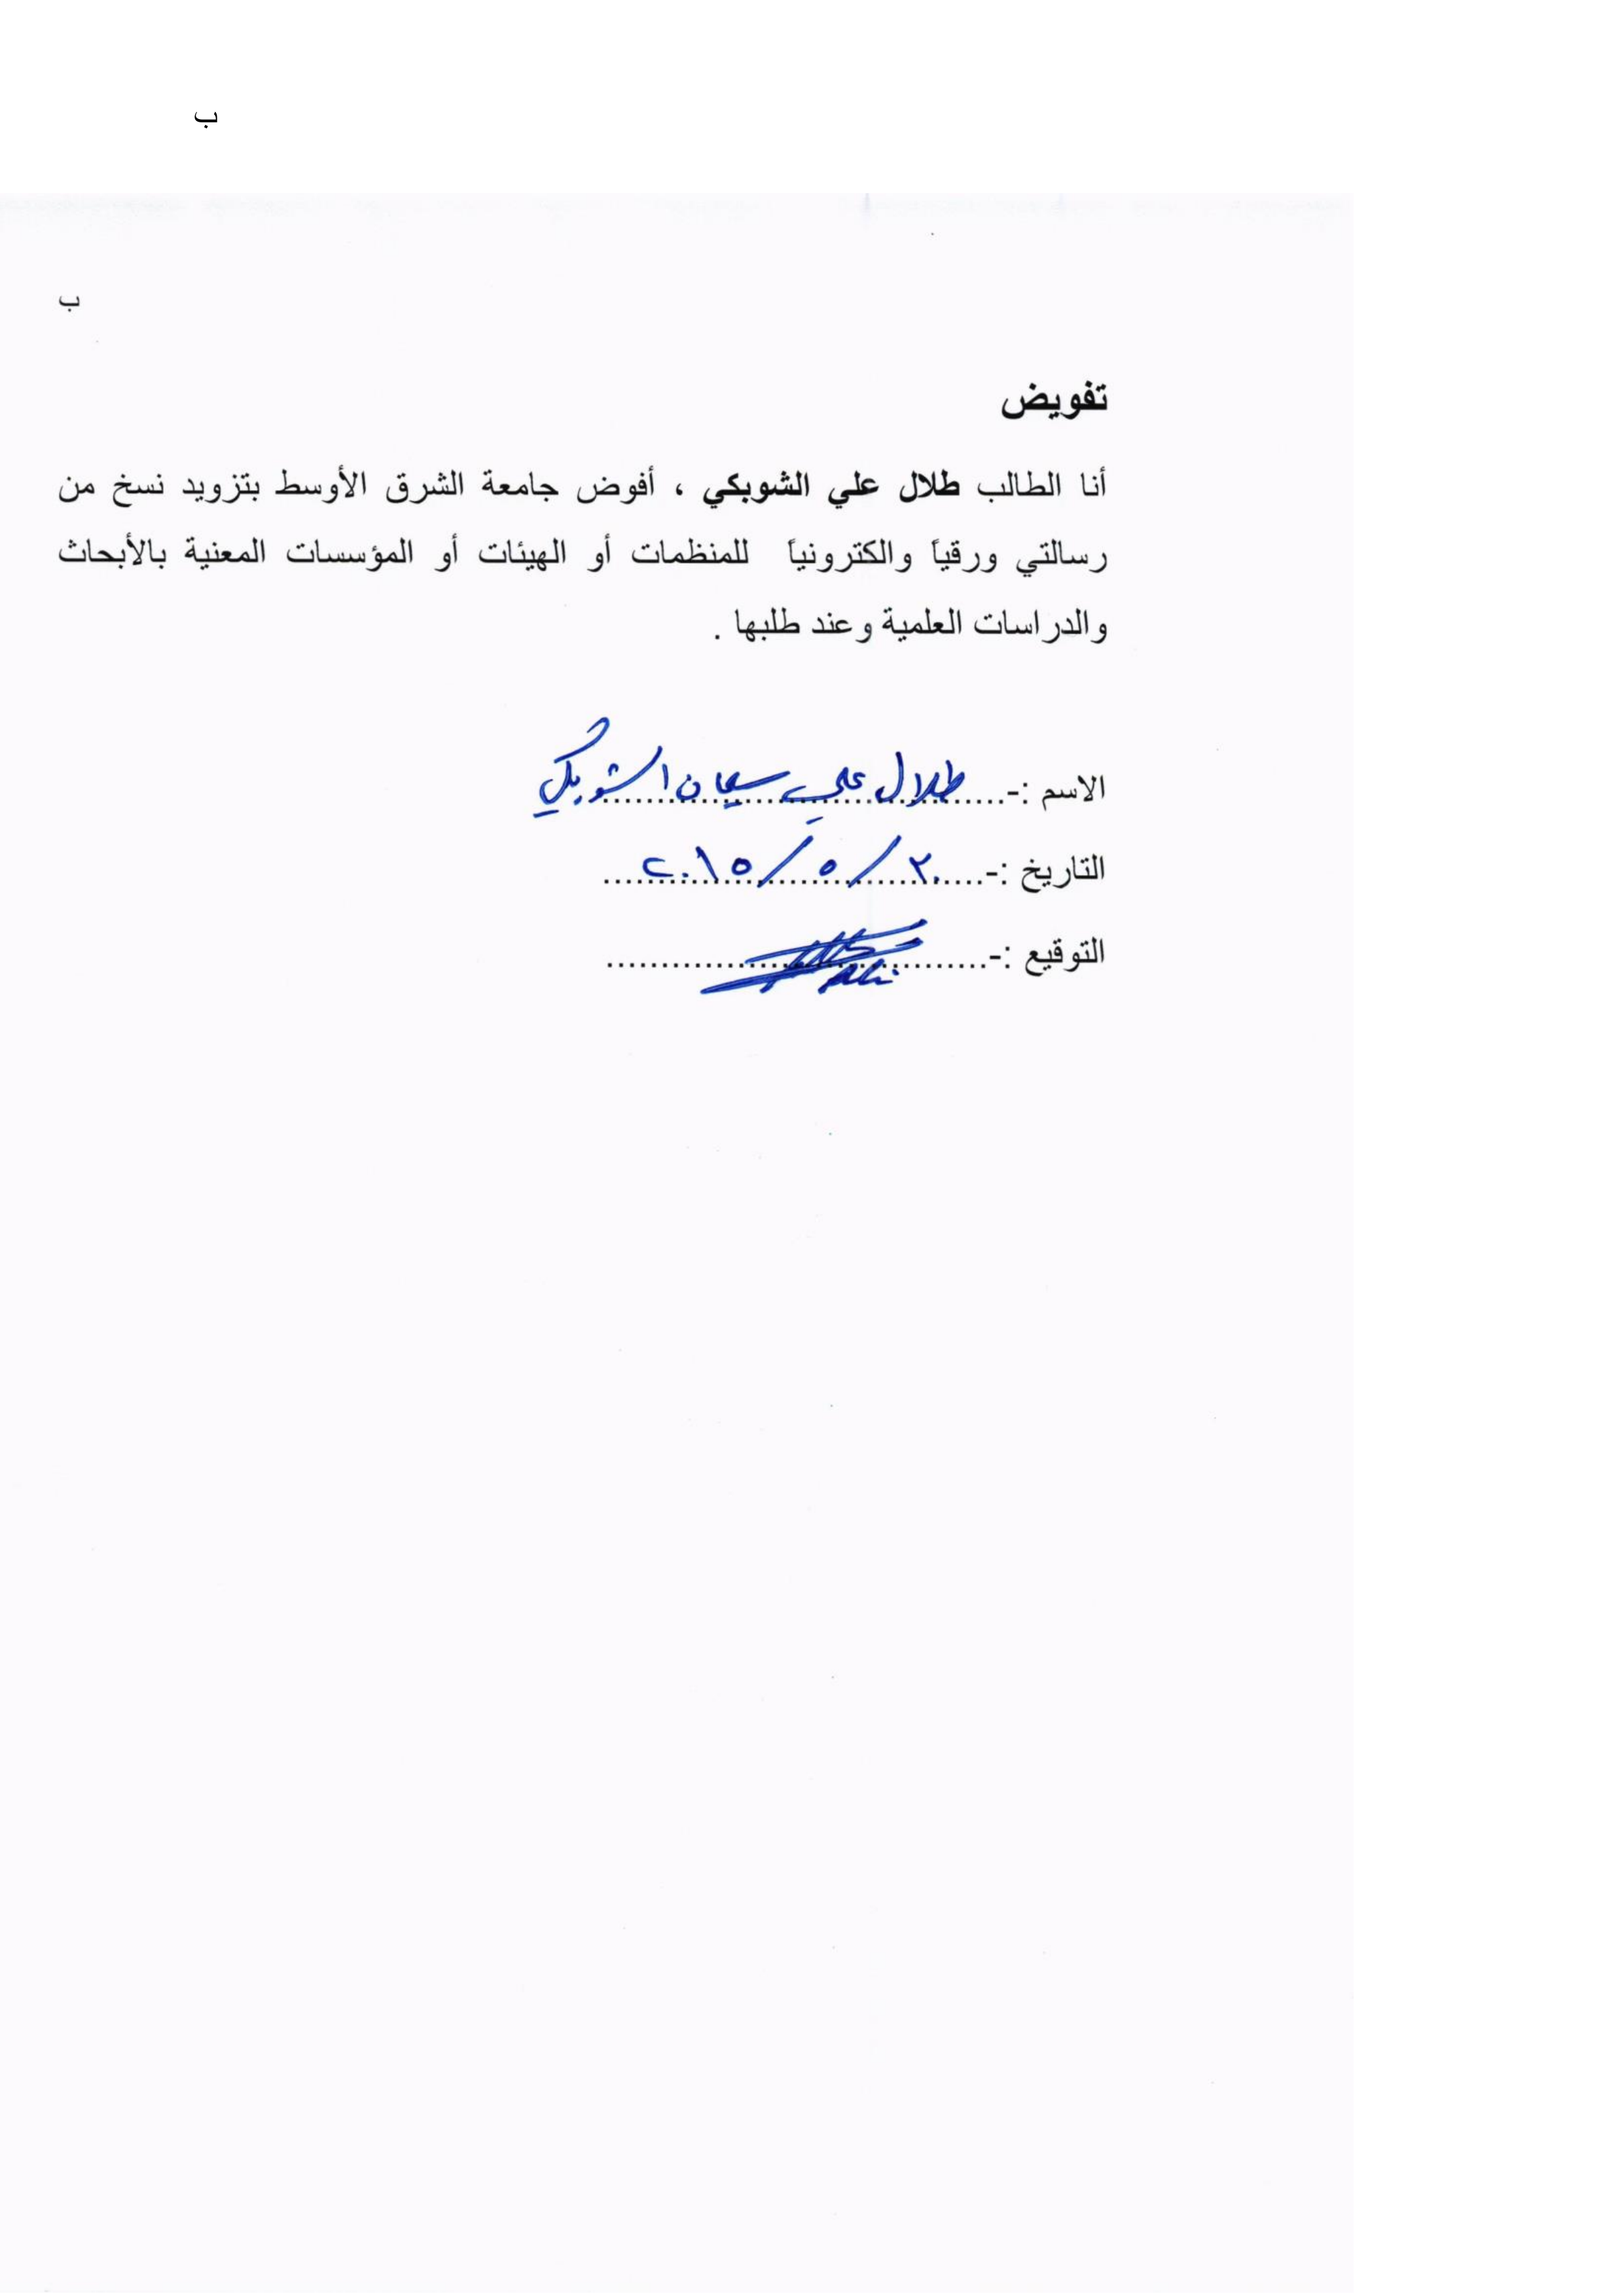 ب
ب
تفويض
أنا الطالب طلال علي الشوبكي ، أفوض جامعة الشرق الأوسط بتزويد نسخ من
رسالتي ورقياً والكترونياً للمنظمات أو الهيئات أو المؤسسات المعنية بالأبحاث
والدراسات العلمية وعند طلبها .
الاسم :-.....طلال علي الشوبكي
التاريخ :-.....٢٠١٥/٥/٣٠
التوقيع :-.....